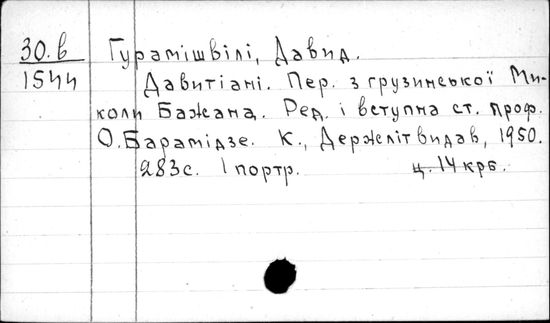 30.в Гурамішвілі, Давид.
1544 Давитіані. Пер. з грузинської Ми-
коли Бажана. Ред. і вступна ст. проф.
О. Барамідзе. К., Держлітвидав, 1950.
283с. 1 портр. ц. 14 крб.